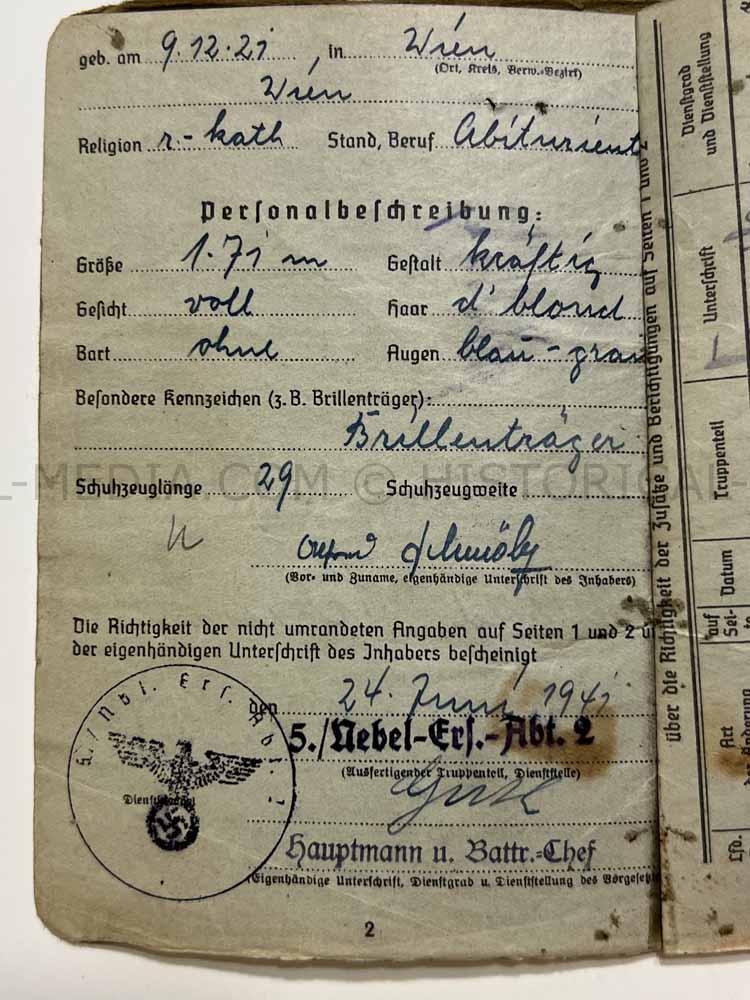 geb. am 9.12.21, in Wien
(Ort, Kreis, Verw.-Bezirk)
Wien
Religion r.-kath Stand, Beruf Abiturient
Personalbeschreibung:
Größe 1.71 m Gestalt kräftig
Gesicht voll Haar d'blond
Bart ohne Augen blau-grau
Besondere Kennzeichen (z.B. Brillenträger):
Brillenträger
Schuhzeuglänge 29 Schuhzeugweite
L-MEDIA.COM © HISTORICAL-
(Vor- und Zuname, eigenhändige Unterschrift des Inhabers)
Die Richtigkeit der nicht umrandeten Angaben auf Seiten 1 und 2 u
der eigenhändigen Unterschrift des Inhabers bescheinigt
den 24. Juni 1941
5./Nebel-Ers.-Abt. 2
(Ausfertigender Truppenteil, Dienststelle)
Hauptmann u. Battr.-Chef
(Eigenhändige Unterschrift, Dienstgrad u. Dienststellung des Vorgesetz
2
5./Nbl. Ers. Abt. 2
Dienstsiegel
über die Richtigkeit der Zusätze und Berichtigungen auf Seiten 1 und 2
Dienstgrad
und Dienststellung
Unterschrift
Truppenteil
Datum
auf
Sei-
te
Art
der Änderung
Lfd.